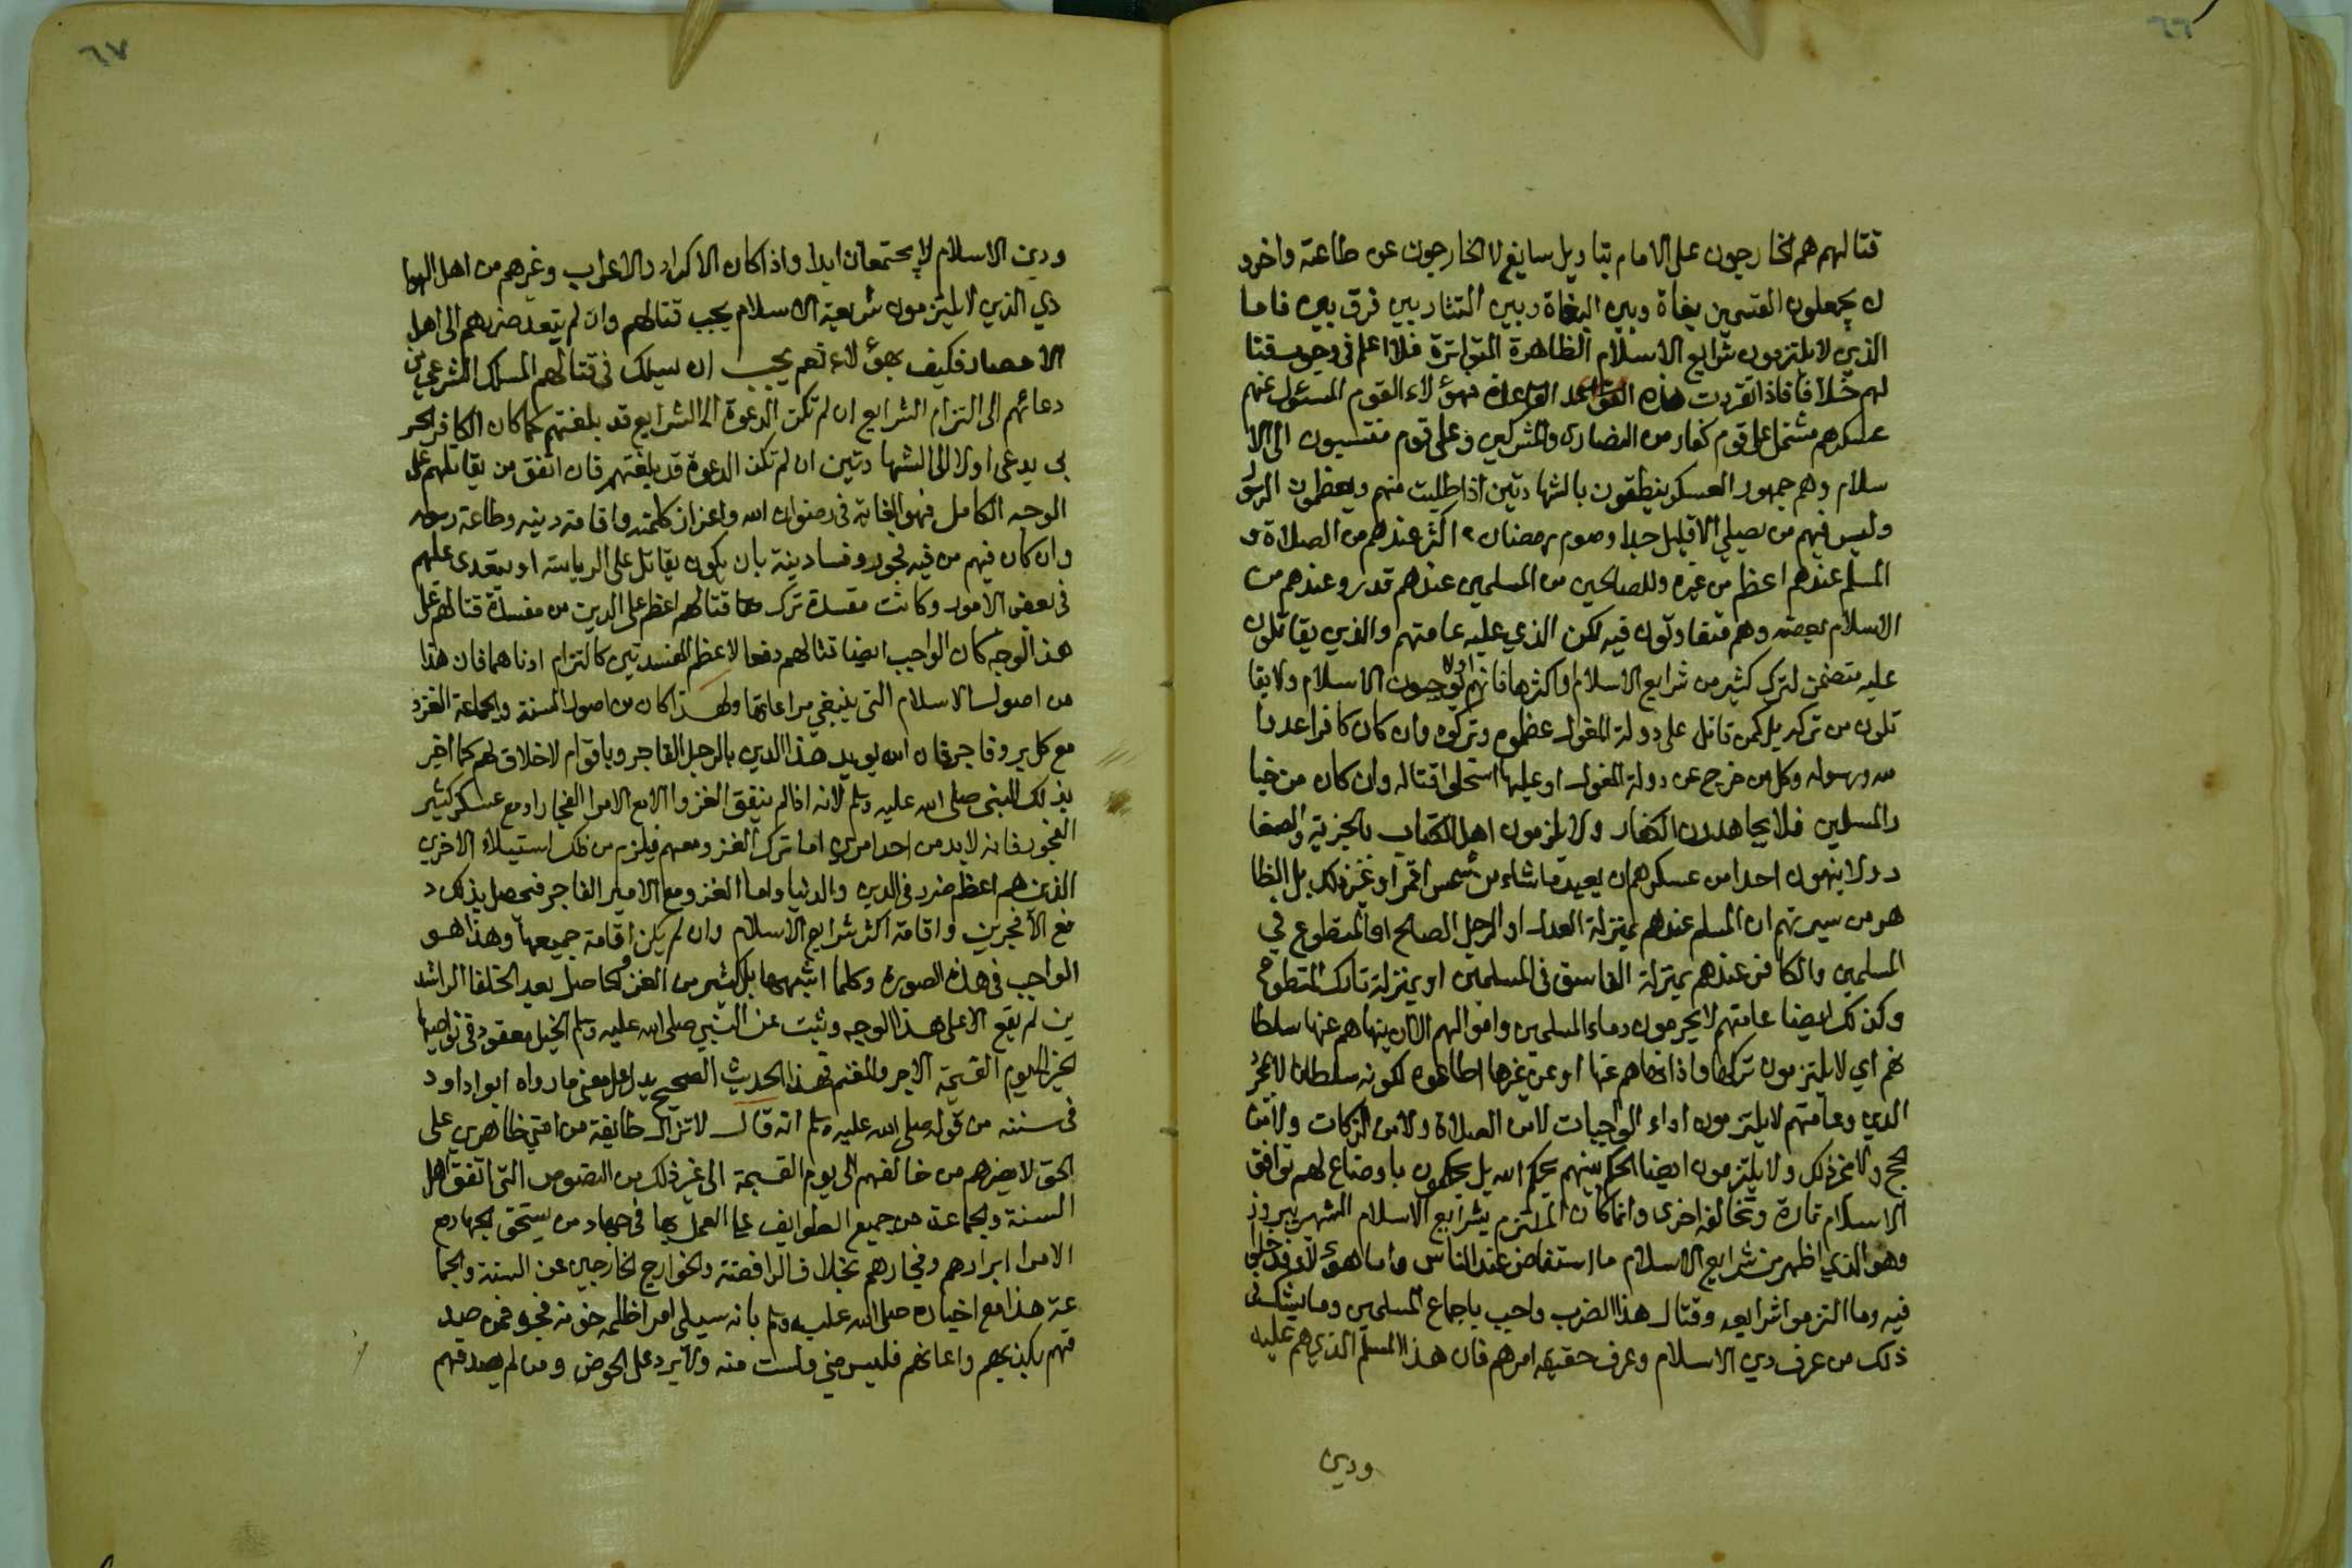 ٦٦
قتالهم هم الخارجون على الامام بتاويل سايغ لا الخارجون عن طاعته واخرو
ن يجعلون القسمين بغاة وبين البغاة وبين التتار بين فرق بين فاما
الذين لا يلتزمون شرايع الاسلام الظاهرة المتواترة فلا اعلم في وجوب قتا
لهم خلافا فاذا تقررت هذه القاعدة فهؤلاء القوم المسئول عنهم
عسكرهم مشتمل على قوم كفار من النصارى والمشركين وعلى قوم منتسبون الى الا
سلام وهم جمهور العسكر ينطقون بالشهادتين اذا طلبت منهم ويعظمون الرسول
وليس فيهم من يصلي الا قليل جدا وصوم رمضان اكثر عندهم من الصلاة و
المسلم عندهم اعظم من غيره وللصالحين من المسلمين عندهم قدر وعندهم من
الاسلام بعضه وهم متفاوتون فيه لكن الذي عليه عامتهم والذي يقاتلون
عليه متضمن لترك كثير من شرايع الاسلام واكثرها فانهم اولا يوجبون الاسلام ولا يقا
تلون من تركه بل كمن قاتل على دولة المغول عظموه وتركوه وان كان كافرا عدوا
لله ورسوله وكل من خرج عن دولة المغول او عليها استحلوا قتاله وان كان من خيا
ر المسلمين فلا يجاهدون الكفار ولا يلزمون اهل الكتاب بالجزية والصغا
ر ولا ينهون احدا من عسكرهم ان يعبد ما شاء من شمس او قمر او غير ذلك بل الظا
هر من سيرتهم ان المسلم عندهم بمنزلة العدل او الرجل الصالح او المتطوع في
المسلمين والكافر عندهم بمنزلة الفاسق في المسلمين او بمنزلة تارك المتطوع
وكذلك ايضا عامتهم لا يحرمون دماء المسلمين واموالهم الا ان ينهاهم عنها سلطا
نهم اي لا يلتزمون تركها واذا نهاهم عنها او عن غيرها اطاعوه لكونه سلطانا لا بمجرد
الدين وعامتهم لا يلتزمون اداء الواجبات لا من الصلاة ولا من الزكات ولا من
الحج ولا غير ذلك ولا يلتزمون ايضا الحكم بينهم بحكم الله بل يحكمون باوضاع لهم توافق
الاسلام تارة وتخالفه اخرى وانما كان الملتزم بشرايع الاسلام الشهير بيرون
وهو الذي اظهر من شرايع الاسلام ما استفاض عند الناس واما هؤلاء فدخلوا
فيه وما التزموا شرايعه وقتال هذا الضرب واجب باجماع المسلمين وما يشك في
ذلك من عرف دين الاسلام وعرف حقيقة امرهم فان هذا المسلم الذي هم عليه
ودين
٦٧
ودين الاسلام لا يجتمعان ابدا واذا كان الاكراد والاعراب وغيرهم من اهل البوا
دي الذي لا يلتزمون شريعة الاسلام يجب قتالهم وان لم يتعد ضررهم الى اهل
الامصار فكيف بهؤلاء نعم يجب ان يسلك في قتالهم المسلك الشرعي من
دعائهم الى التزام الشرايع ان لم تكن الدعوة الى الشرايع قد بلغتهم كما كان الكافر الحر
بي يدعى اولا الى الشهادتين ان لم تكن الدعوة قد بلغتهم فان اتفق من يقاتلهم على
الوجه الكامل فهو الغاية في رضوان الله واعزاز كلمته واقامة دينه وطاعة رسوله
وان كان فيهم من فيه فجور وفساد نية بان يكون يقاتل على الرياسة او يتعدى عليهم
في بعض الامور وكانت مفسدة ترك قتالهم اعظم على الدين من مفسدة قتالهم على
هذا الوجه كان الواجب ايضا قتالهم دفعا لاعظم المفسدتين كالتزام ادناهما فان هذا
من اصول الاسلام التي ينبغي مراعاتها ولهذا كان من اصول السنة والجماعة الغزو
مع كل بر وفاجر فان الله يويد هذا الدين بالرجل الفاجر وباقوام لا خلاق لهم كما اخبر
بذلك النبي صلى الله عليه وسلم لانه اذا لم يتفق الغزو الا مع الامرا الفجار او مع عسكر كثير
الفجور فانه لا بد من احد امرين اما ترك الغزو معهم فيلزم من ذلك استيلاء الاخرين
الذين هم اعظم ضرر في الدين والدنيا واما الغزو مع الامير الفاجر فيحصل بذلك د
فع الافجرين واقامة اكثر شرايع الاسلام وان لم يكن اقامة جميعها وهذا هو
الواجب في هذه الصورة وكلما اشبهها بل كثير من الغزو الحاصل بعد الخلفا الراشد
ين لم يقع الا على هذا الوجه وثبت عن النبي صلى الله عليه وسلم الخيل معقود في نواصيها
الخير الى يوم القيمة الاجر والمغنم فهذا الحديث الصحيح يدل على معنى ما رواه ابوا داود
في سننه من قوله صلى الله عليه وسلم انه قال لا تزال طايفة من امتي ظاهرين على
الحق لا يضرهم من خالفهم الى يوم القيمة الى غير ذلك من النصوص التي اتفق اهل
السنة والجماعة من جميع الطوايف على العمل بها في جهاد من يستحق الجهاد مع
الامرا ابرارهم وفجارهم بخلاف الرافضة والخوارج الخارجين عن السنة والجما
عة هذا مع اخباره صلى الله عليه وسلم بانه سيلي امرا ظلمه خونه فجره فمن صد
قهم بكذبهم واعانهم فليس مني ولست منه ولا يرد على الحوض ومن لم يصدقهم